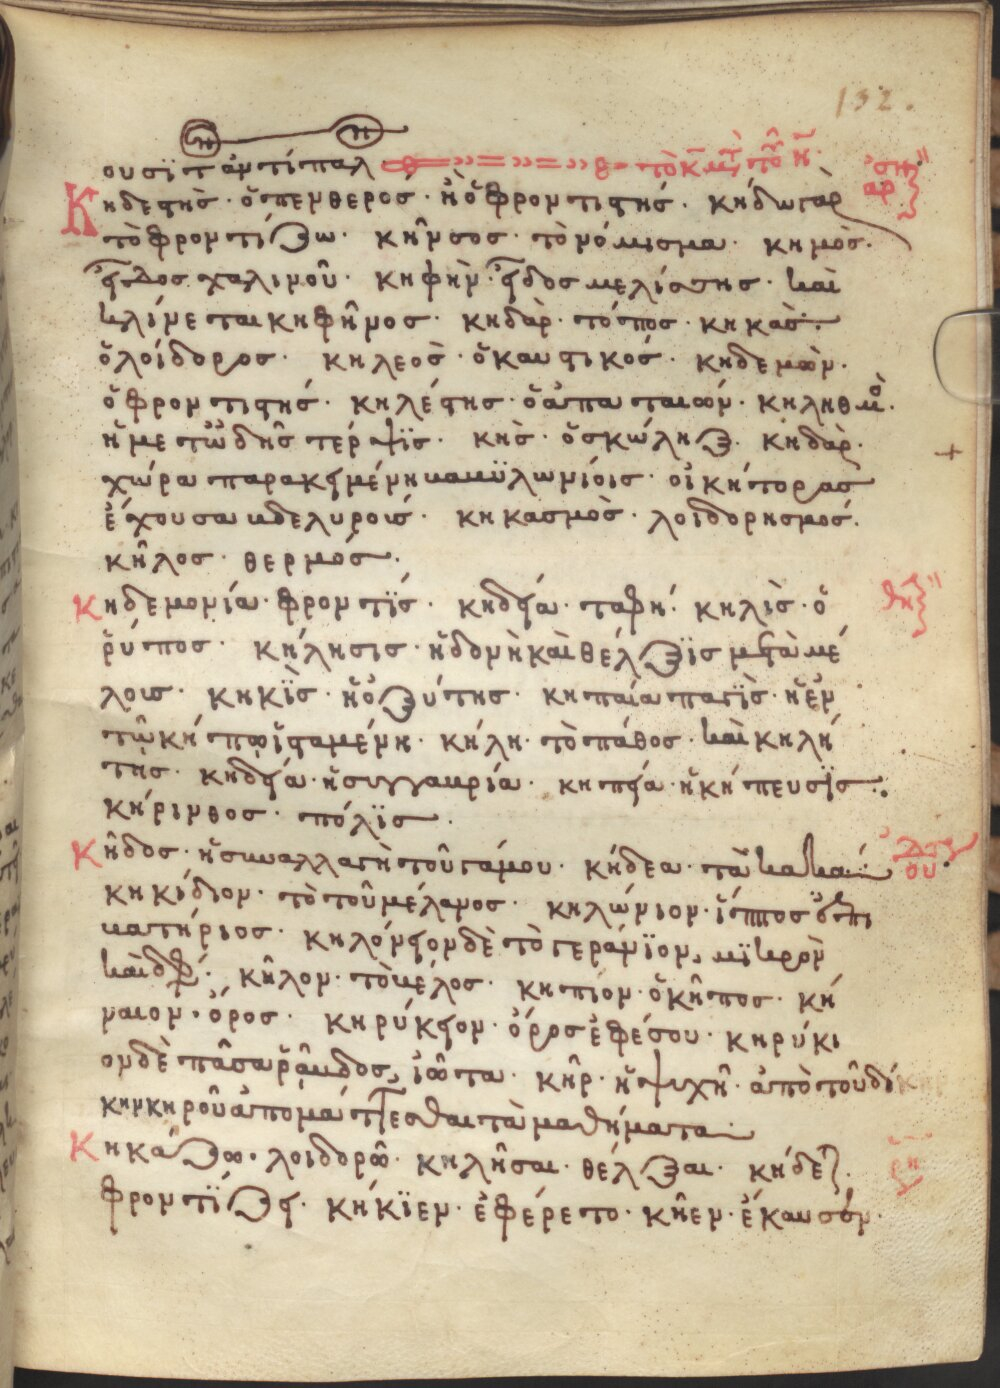 132.
ουσίτ ἀντίπαλ τὸ κ μτ τὸ η
Κηδεστὴς· ὁ πενθερὸς· ἢ ὁ φροντιστής· κήδω γὰρ ἀρσηⁿ
τὸ φροντίζω· κῆνσος· τὸ νόμισμα· κημὸς·
εἶδος χαλινοῦ· κηφὴν· εἶδος μελίσσης· καὶ
κλίνεται κηφῆνος· κηδὰρ· τόπος· κηκὰς·
ὁ λοίδορος· κηλεὸς· ὁ καυστικός· κηδεμὼν·
ὁ φροντιστής· κηλέστης· ὁ ἀπαταιών· κηληθμὸ·
ἡ μετ' ᾠδῆς τέρψις· κὴς· ὁ σκώληξ· κηδὰρ·
χώρα παρακειμένη βαβυλωνίοις· οἰκήτορας
ἔχουσα βδελυροὺς· κηκασμὸς· λοιδορησμός·
κῆλος· θερμός·
Κηδεμονία· φροντίς· κηδεία· ταφή· κηλὶς· ὁ θηⁿ
ῥύπος· κήλησις· ἡδονὴ καὶ θέλξις μετὰ μέ
λους· κηκὶς· ἡ ὀξύτης· κηπαία παγὶς· ἡ ἐν
τῷ κήπῳ ἱσταμένη· κήλη· τὸ πάθος· καὶ κηλή
της· κηδεία· ἡ συγγαμρία· κηπεία· ἡ κήπευσις·
κήρινθος· πόλις·
Κῆδος· ἡ συναλλαγὴ τοῦ γάμου· κήδεα· τὰ κακά· οὐ
κηκίδιον· τὸ τοῦ μέλανος· κηλώνιον· ἵππος ὁ ἐπι
κατήριος· κηλόνειον δὲ τὸ γεράνιον, μικρὸν
καὶ δφ· κῆλον· τὸ βέλος· κηπίον· ὁ κῆπος· κή
ναιον· ὄρος· κηρύκειον· ὄρος ἐφέσου· κηρύκι
ον δὲ πᾶσα ῥάβδος, ἰῶτα· κῆρ· ἡ ψυχῆ· ἀπὸ τοῦ δί
κην κηροῦ ἀπομάττεσθαι τὰ μαθήματα
Κηκάζω· λοιδορῶ· κηλῆσαι· θέλξαι· κήδε· ρη
φροντίζει· κήκιεν· ἐφέρετο· κῆεν· ἔκαυσεν·